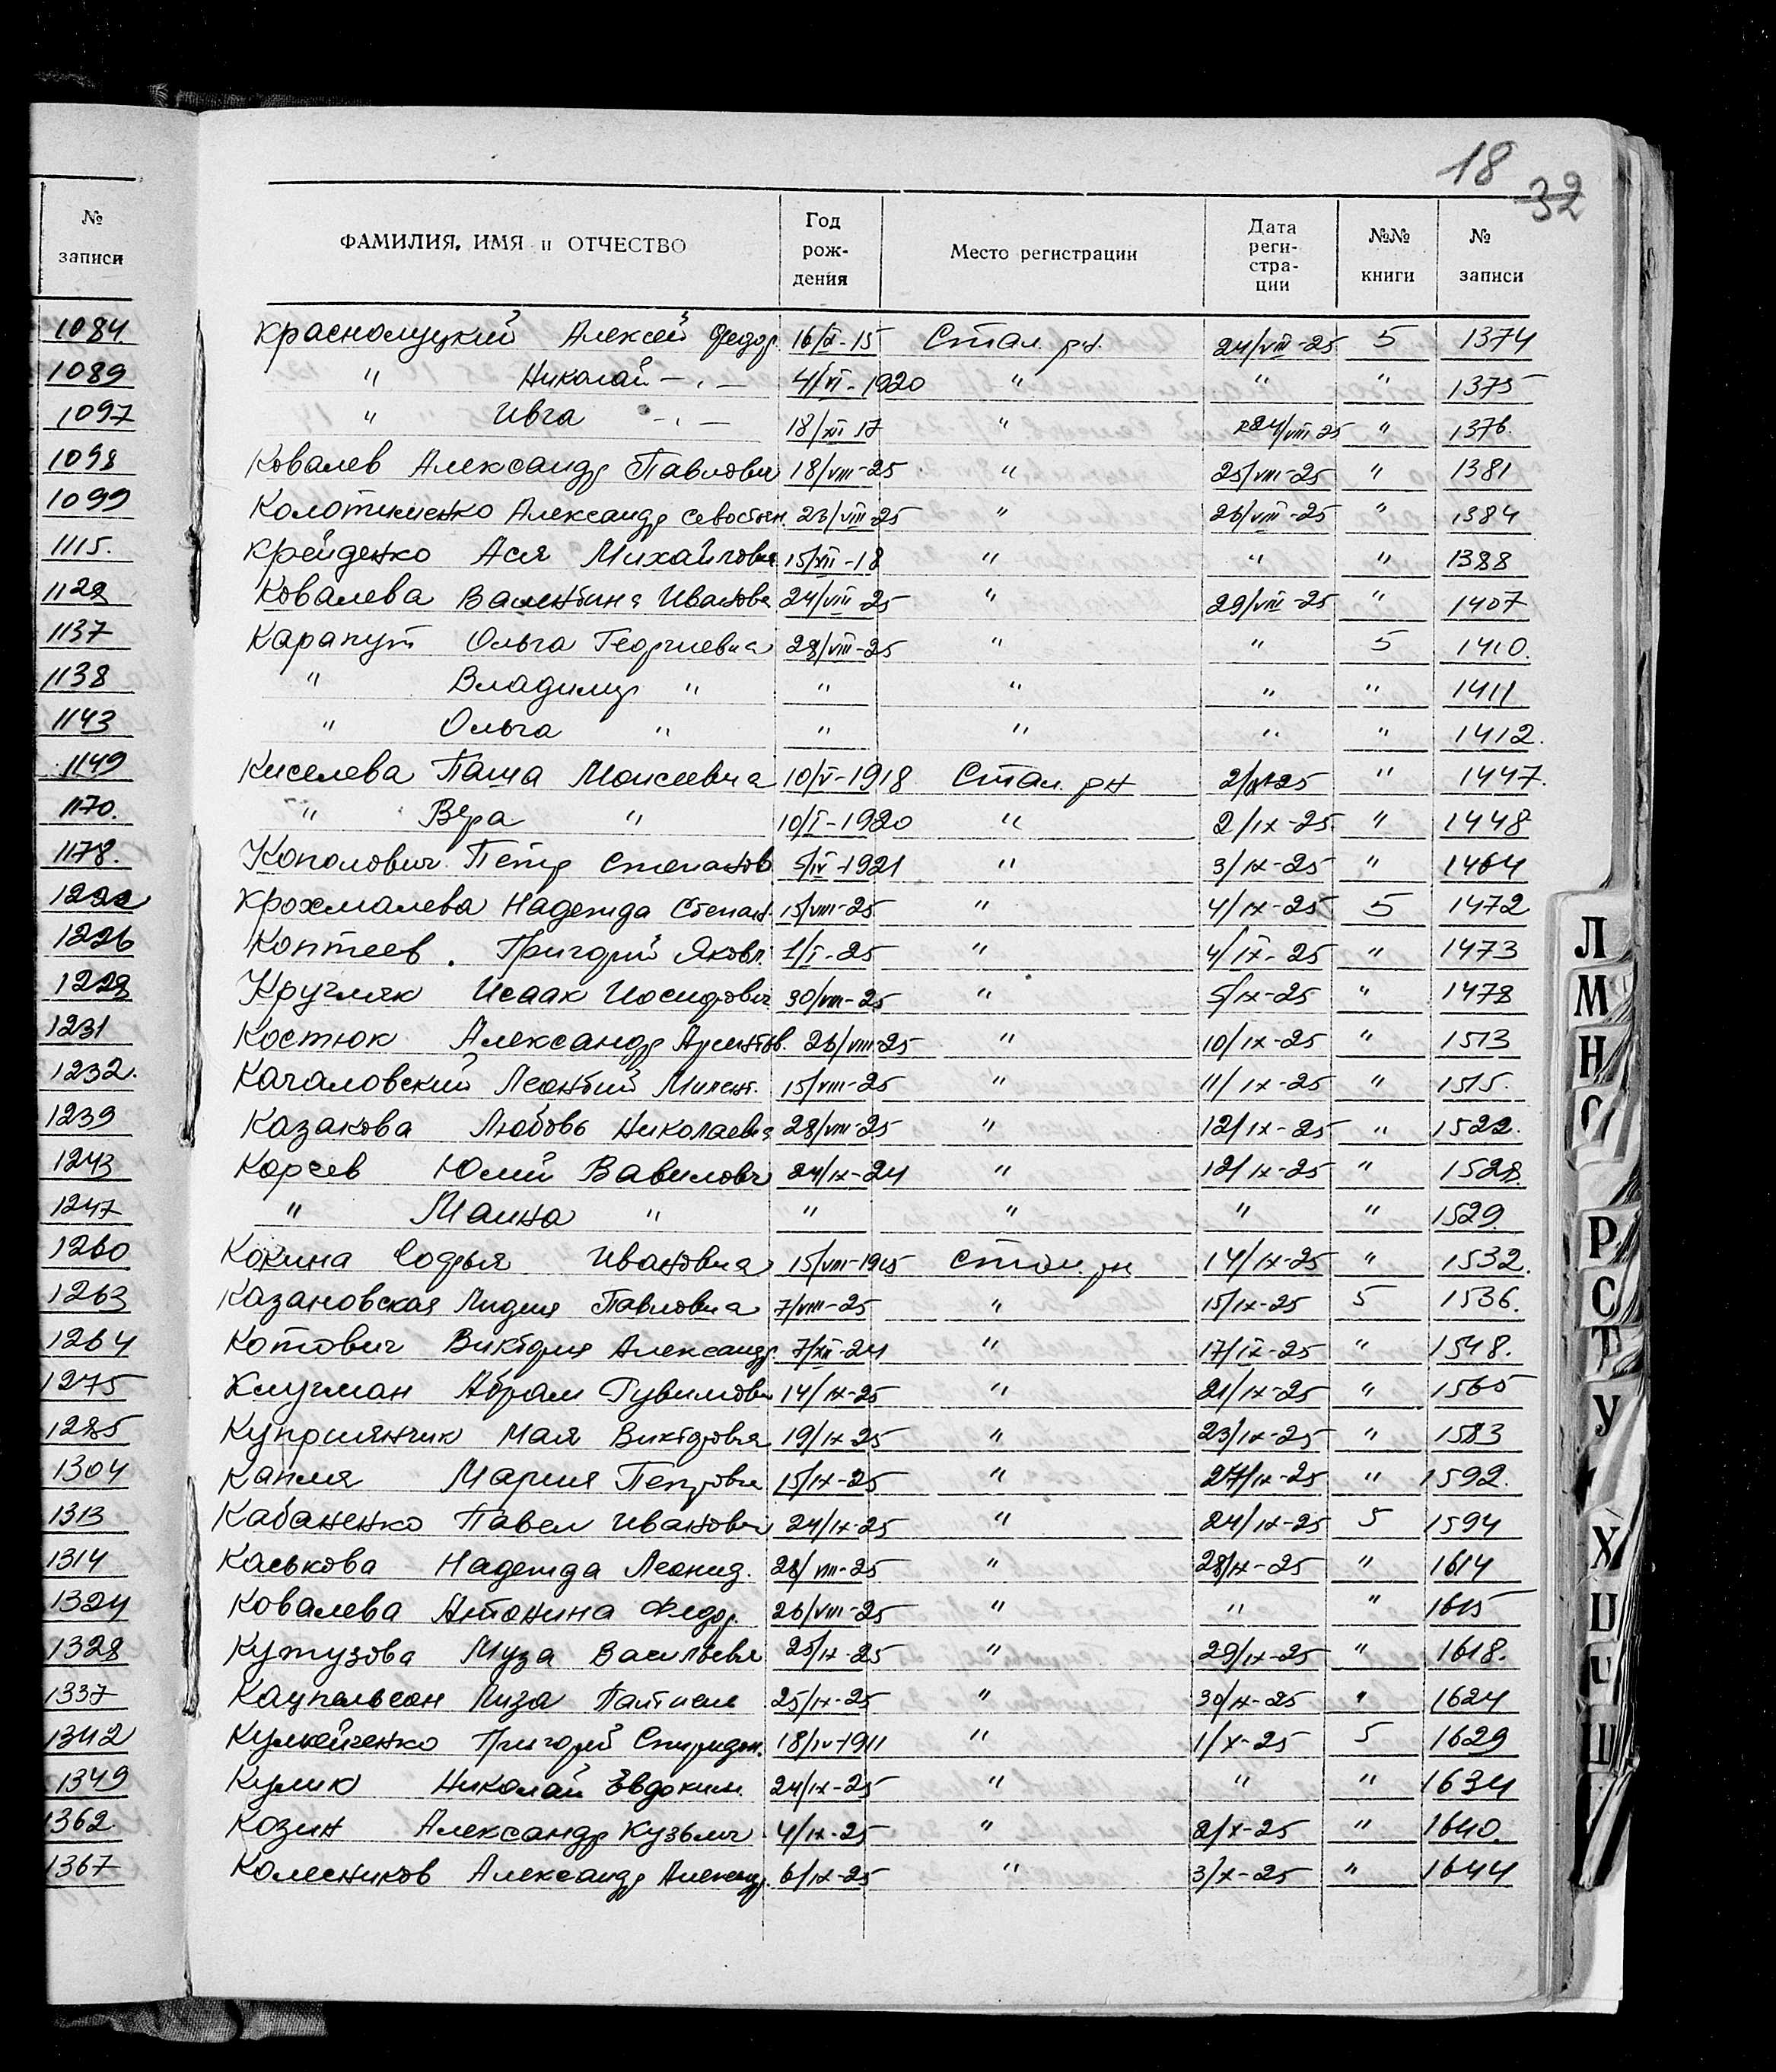 18
32
№ записи
ФАМИЛИЯ, ИМЯ и ОТЧЕСТВО Год рож- дения Место регистрации Дата реги- стра- ции №№ книги № записи
1084 Краснолуцкий Алексей Федор. 16/IX-15 Стал. рн. 24/VIII-25 5 1374
1089 " Николай -"- 4/VI-1920 " " " 1375
1097 " Ивга -"- 18/XII 17 " 24/VIII 25 " 1376.
1098 Ковалев Александр Павлович 18/VIII-25 " 25/VIII-25 " 1381
1099 Александр Севостьян. 23/VIII-25 " 26/VIII-25 " 1384
1115. Крейденко Ася Михайловна 15/XII-18 " " " 1388
1128 Ковалева Валентина Иванова 24/VIII-25 " 29/VIII-25 " 1407
1137 Карапут Ольга Георгиевна 28/VIII-25 " " 5 1410.
1138 " Владимир " " " " " 1411
1143 " Ольга " " " " " 1412.
1149 Киселева Паша Моисеевна 10/V-1918 Стал. рн 2/IX-25 " 1447.
1170. " Вера " 10/I-1920 " 2/IX-25. " 1448
1178. Кополович Петр Степанов 5/IV-1921 " 3/IX-25 " 1464
1222 Крохмалева Надежда Степан. 15/VIII-25 " 4/IX-25 5 1472
1226 Коптеев. Григорий Яковл. 1/I-25 " 4/IX-25 " 1473
1228 Кругляк Исаак Иосифович 30/VIII-25 " 5/IX-25 " 1478
1231 Костюк Александр 26/VIII-25 " 10/IX-25 " 1513
1232. Качаловский Леонтий 15/VIII-25 " 11/IX-25 " 1515.
1239 Казакова Любовь Николаевна 28/VIII-25 " 12/IX-25 " 1522.
1243 Корсев Юлий Вавилович 24/IX-24 " 12/IX-25 " 1528.
1247 " Маина " " " " " 1529.
1260 Кокина Софья Ивановна 15/VIII-1915 Стал. рн 14/IX-25 " 1532.
1263 Казановская Лидия Павловна 7/VIII-25 " 15/IX-25 5 1536.
1264 Котович Виктория Александр. 7/XII-24 " 17/IX-25 " 1548.
1275 Клугман Абрам Рувимович 14/IX-25 " 21/IX-25 " 1565
1285 Куприянчик Мая Викторовна 19/IX-25 " 23/IX-25 " 1583
1304 Капля Мария Петровна 15/IX-25 " 27/IX-25 " 1592.
1313 Кабаненко Павел Иванович 24/IX-25 " 24/IX-25 5 1594
1314 Каськова Надежда Леонид. 28/VIII-25 " 28/IX-25 " 1614
1324 Ковалева Антонина Федор. 26/VIII-25 " " " 1615
1328 Кутузова Муза Васильевна 25/IX-25 " 29/IX-25 " 1618.
1337 Каупельсон Лиза 25/IX-25 " 30/IX-25 " 1624
1342 Григорий Спиридон. 18/IV-1911 " 1/X-25 5 1629
1349 Кулик Николай Евдоким. 24/IX-25 " " " 1634
1362 Козин Александр Кузьмич 4/IX-25 " 2/X-25 " 1640.
1367 Колесников Александр Александр. 6/IX-25 " 3/X-25 " 1644
Л
М
Н
О
Р
С
Т
У
Х
Ц
Ч
Ш